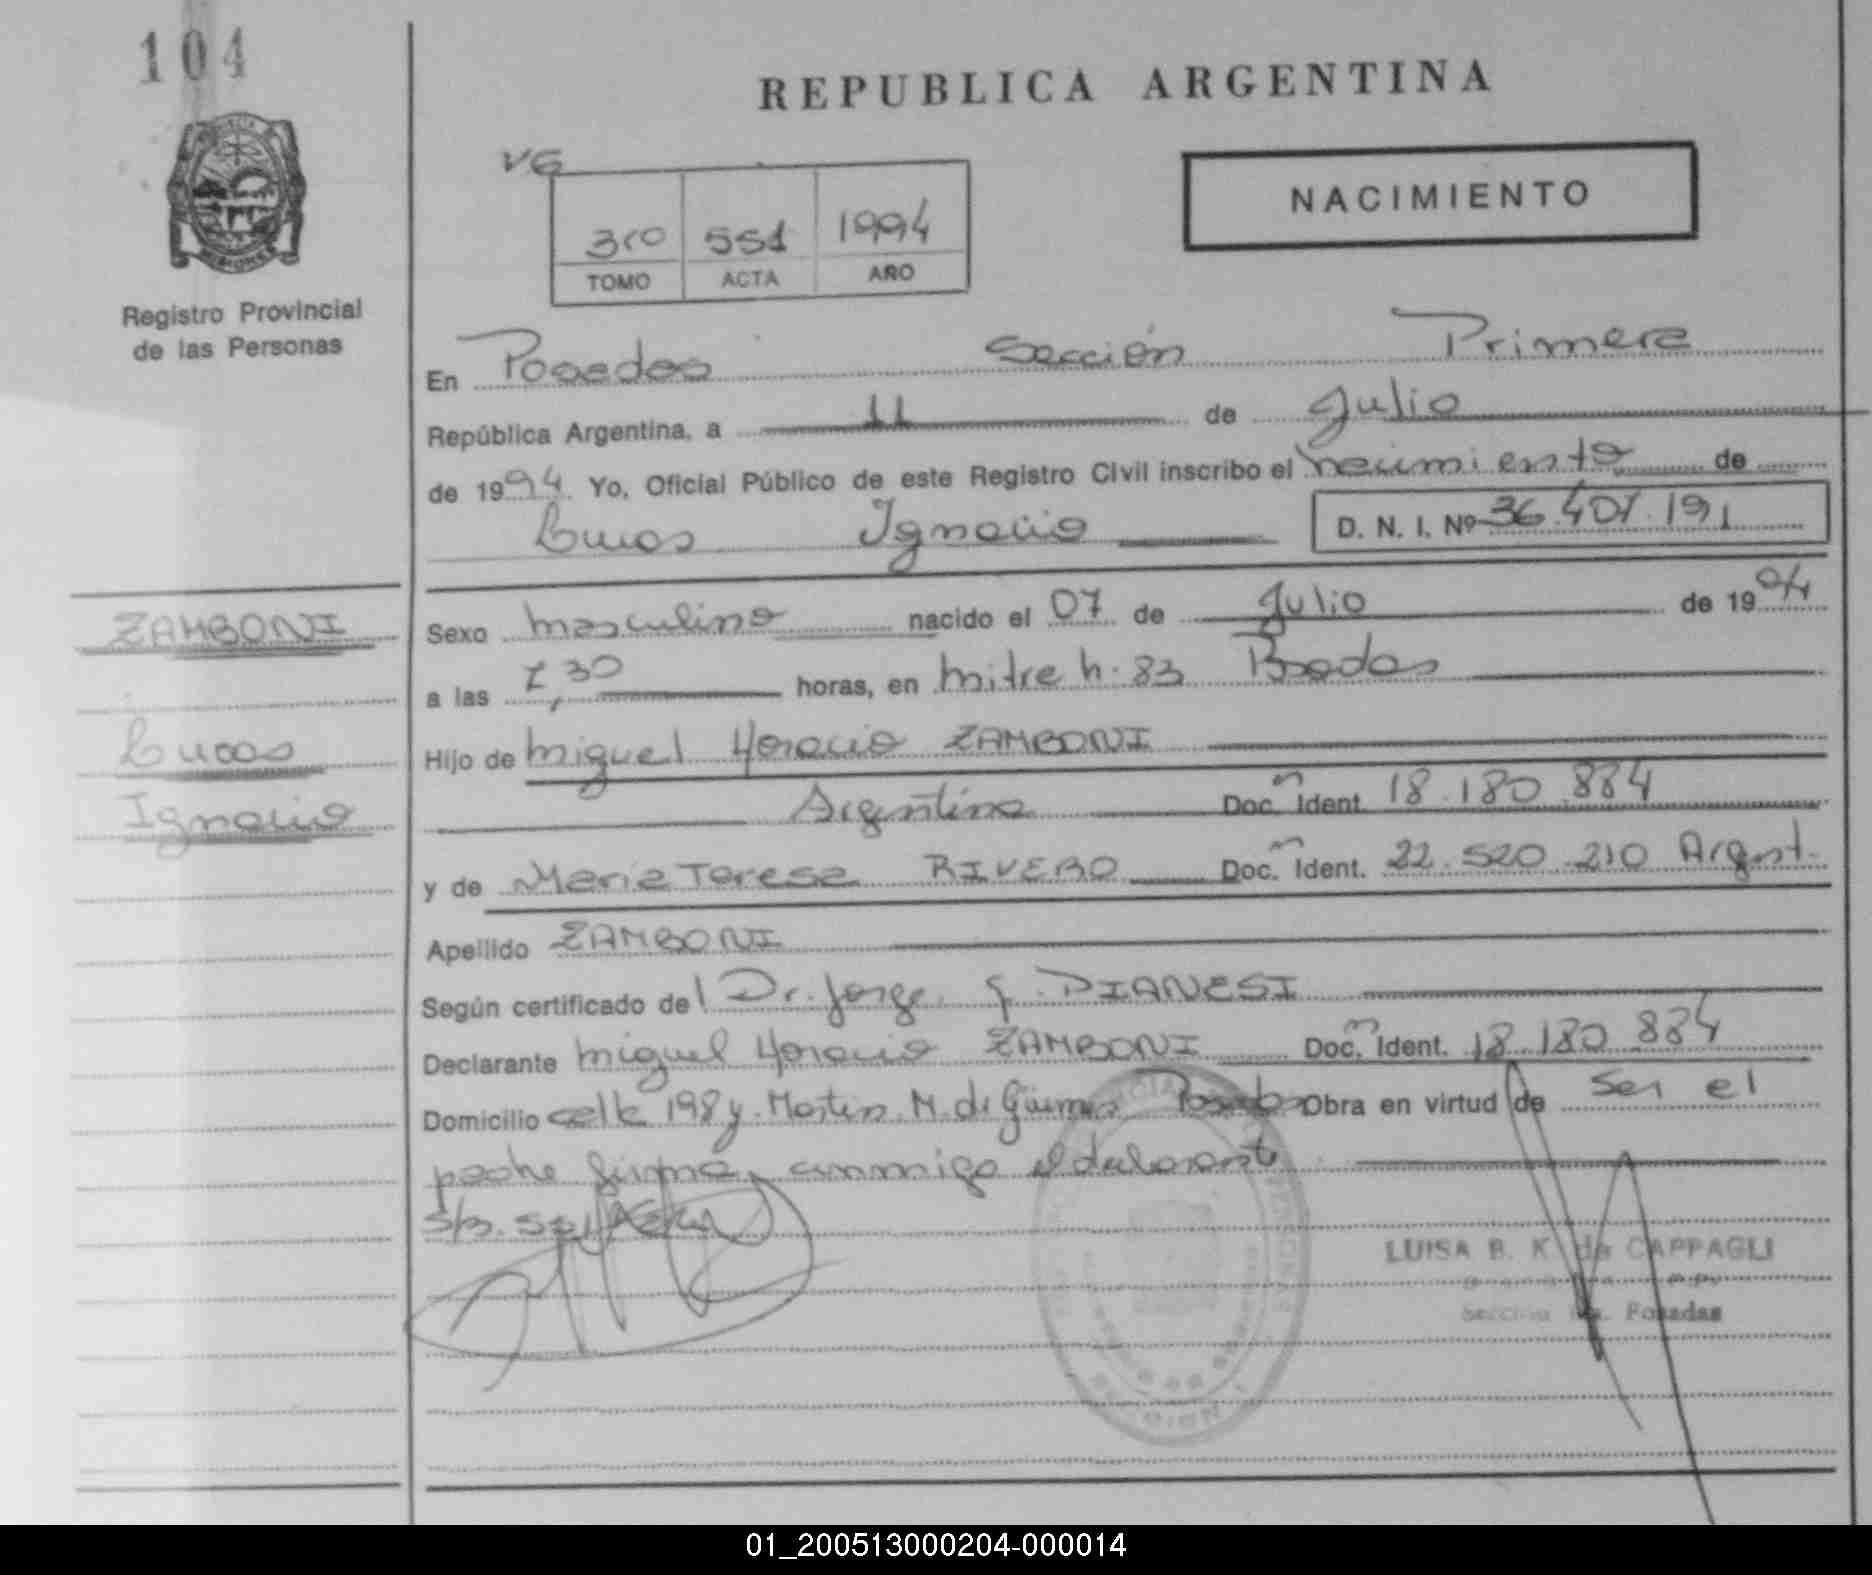 104
REPUBLICA ARGENTINA
VG
NACIMIENTO
3ro 551 1994
TOMO ACTA AÑO
Registro Provincial
de las Personas
En Posadas Sección Primera
República Argentina, a 11 de Julio
de 1994 Yo, Oficial Público de este Registro Civil inscribo el nacimiento de
Lucas Ignacio D. N. I. Nº 36.407.191
ZAMBONI
Lucas
Ignacio
Sexo masculino nacido el 07 de Julio de 1994
a las 7,30 horas, en Mitre n. 83 Posadas
Hijo de Miguel Horacio ZAMBONI
Argentina Doc. Ident. 18.180.884
y de Maria Teresa RIVERO Doc. Ident. 22.520.210 Argent.
Apellido ZAMBONI
Según certificado del Dr. Jorge G. DIANESI
Declarante Miguel Horacio ZAMBONI Doc. Ident. 18.180.884
Domicilio calle 198 y Martin M. de Güemes Posadas Obra en virtud de ser el
padre firma conmigo el declarante
LUISA B. K. de CAPPAGLI
Sección 1a. Posadas
01_200513000204-000014